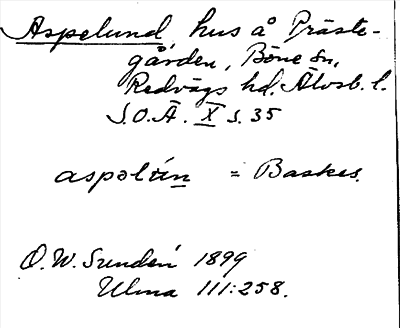 Aspelund, hus å Präste-
gården, Böne sn,
Redvägs hd. Älvsb. l.
S.O.Ä. X s. 35
aspəlún = Baskes.
O. W. Sundén 1899
Ulma 111:258.